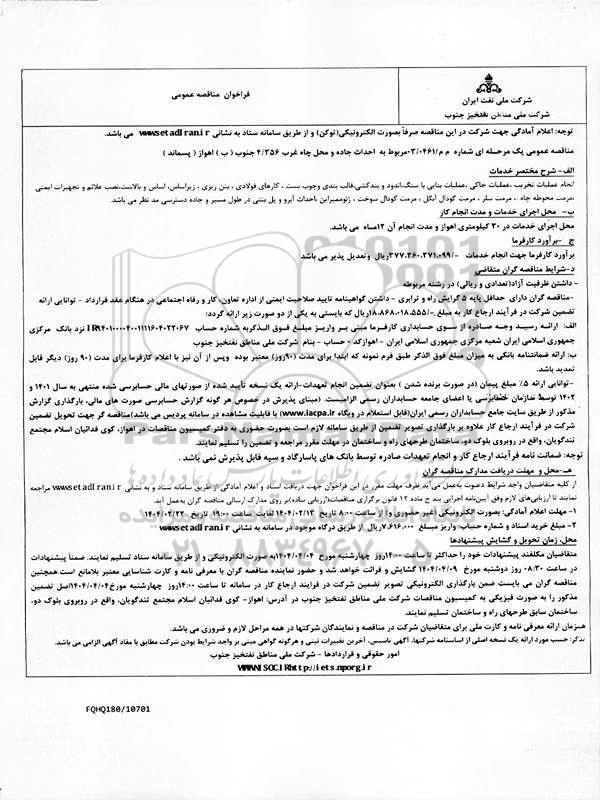 شرکت ملی نفت ایران
شرکت ملی مناطق نفتخیز جنوب
فراخوان مناقصه عمومی
توجه: اعلام آمادگی جهت شرکت در این مناقصه صرفاً بصورت الکترونیکی(توکن) و از طریق سامانه ستاد به نشانی www.setadIran.ir می باشد.
مناقصه عمومی یک مرحله ای شماره م م/۰۳/۰۴۶۱ مربوط به احداث جاده و محل چاه غرب ۴/۳۵۶ جنوب ( ب ) اهواز ( پسماند )
الف- شرح مختصر خدمات
انجام عملیات تخریب ،عملیات خاکی ،عملیات بنایی با سنگ،اندود و بندکشی،قالب بندی وچوب بست ، کارهای فولادی ، بتن ریزی ، زیراساس، اساس و بالاست،نصب علائم و تجهیزات ایمنی
،مرمت محوطه چاه ، مرمت سلر ، مرمت گودال آبگل ، مرمت گودال سوخت ، ژئوممبراین ،احداث آبرو و پل بتنی در طول مسیر و جاده دسترسی مد نظر می باشد.
ب- محل اجرای خدمات و مدت انجام کار
محل اجرای خدمات در ۳۰ کیلومتری اهواز و مدت انجام آن ۱۲ماه می باشد.
ج -برآورد کارفرما
برآورد کارفرما جهت انجام خدمات -/۳۷۷.۳۶۰.۳۷۱.۰۹۹ریال وتعدیل پذیر می باشد
د-شرایط مناقصه گران متقاضی
- داشتن ظرفیت آزاد(تعدادی و ریالی) در رشته مربوطه
-مناقصه گران دارای حداقل پایه ۵ گرایش راه و ترابری - داشتن گواهینامه تایید صلاحیت ایمنی از اداره تعاون، کار و رفاه اجتماعی در هنگام عقد قرارداد - توانایی ارائه
تضمین شرکت در فرآیند ارجاع کار به مبلغ -/۱۸.۸۶۸.۰۱۸.۵۵۵ریال که بایستی به یکی از دو صورت زیر ارائه گردد:
الف: ارائه رسید وجه صادره از سوی حسابداری کارفرما مبنی بر واریز مبلغ فوق الذکربه شماره حساب IR۹۴۰۱۰۰۰۰۴۰۰۱۱۱۱۶۰۴۰۲۲۰۶۷ نزد بانک مرکزی
جمهوری اسلامی ایران شعبه مرکزی جمهوری اسلامی ایران - اهوازکد - حساب - بنام شرکت ملی مناطق نفتخیز جنوب
ب: ارائه ضمانتنامه بانکی به میزان مبلغ فوق الذکر طبق فرم نمونه که ابتدا برای مدت (۹۰روز) معتبر بوده وپس از آن نیز با اعلام کارفرما برای مدت (۹۰ روز) دیگر قابل
تمدید باشد.
-توانایی ارائه ۵٪ مبلغ پیمان (در صورت برنده شدن ) بعنوان تضمین انجام تعهدات-ارائه یک نسخه تأیید شده از صورتهای مالی حسابرسی شده منتهی به سال ۱۴۰۱ و
۱۴۰۲ توسط سازمان حسابرسی یا اعضای جامعه حسابداران رسمی الزامیست. (مبنای پذیرش در خصوص هر گونه گزارش حسابرسی صورت های مالی، بارگذاری گزارش
مذکور از طریق سایت جامع حسابداران رسمی ایران(قابل استعلام در وبگاه www.iacpa.ir) با قابلیت مشاهده در سامانه پردیس می باشد)مناقصه گر جهت تحویل تضمین
شرکت در فرآیند ارجاع کار علاوه بر بارگذاری تصویر تضمین از طریق سامانه لازم است بصورت حضوری به دفتر کمیسیون مناقصات در اهواز، کوی فدائیان اسلام مجتمع
تندگویان، واقع در روبروی بلوک دو، ساختمان طرحهای راه و ساختمان در مهلت مقرر مراجعه و تضمین را تسلیم نمایند.
توجه: ضمانت نامه فرآیند ارجاع کار و انجام تعهدات صادره توسط بانک های پاسارگاد و سپه قابل پذیرش نمی باشد .
هـ-محل و مهلت دریافت مدارک مناقصه گران
از کلیه متقاضیان واجد شرایط دعوت بعمل می آید ظرف مهلت مقرر در این فراخوان جهت دریافت اسناد و اعلام آمادگی از طریق سامانه ستاد و به نشانی www.setadIran.ir مراجعه
نمایند تا ارزیابی‌های لازم وفق آیین‌نامه اجرایی بند ج ماده ۱۲ قانون برگزاری مناقصات(ارزیابی ساده)بر روی مدارک ارسالی مناقصه گران به‌عمل آید.
۱- مهلت اعلام آمادگی: بصورت الکترونیکی (غیر حضوری و) از ساعت ۸:۰۰ تاریخ ۱۴۰۴/۰۲/۱۳ لغایت ساعت ۱۹:۰۰ تاریخ ۱۴۰۴/۰۲/۲۲
۲- مبلغ خرید اسناد و شماره حساب: واریز مبلغ ۷.۶۱۶.۰۰۰ریال از طریق درگاه موجود در سامانه به نشانی www.setadIran.ir
محل، زمان تحویل و گشایش پیشنهادها
متقاضیان مکلفند پیشنهادات خود را حداکثر تا ساعت ۱۴:۰۰روز چهارشنبه مورخ ۱۴۰۴/۰۴/۰۴به صورت الکترونیکی و از طریق سامانه ستاد تسلیم نمایند. ضمناً پیشنهادات
در ساعت ۰۸:۳۰ روز دوشنبه مورخ ۱۴۰۴/۰۴/۰۹ گشایش و قرائت خواهد شد و حضور نماینده مناقصه گران با معرفی نامه و کارت شناسایی معتبر بلامانع است همچنین
مناقصه گران می بایست ضمن بارگذاری الکترونیکی تصویر تضمین شرکت در فرایند ارجاع کار در سامانه تا ساعت ۱۴:۰۰روز چهارشنبه مورخ۱۴۰۴/۰۴/۰۴اصل تضمین
مذکور را به صورت فیزیکی به کمیسیون مناقصات شرکت ملی مناطق نفتخیز جنوب در آدرس: اهواز- کوی فدائیان اسلام مجتمع تندگویان، واقع در روبروی بلوک دو،
ساختمان سابق طرحهای راه و ساختمان تسلیم نمایند.
همزمان ارائه معرفی نامه و کارت ملی برای متقاضیان شرکت در مناقصه و نمایندگان شرکتها در همه مراحل لازم و ضروری می باشد.
تذکر: حسب مورد ارائه یک نسخه اصلی از اساسنامه شرکتها، آگهی تاسیس، آخرین تغییرات ثبتی و هرگونه گواهی مبنی بر واجد شرایط بودن شرکت مطابق با مفاد آگهی الزامی می باشد.
امور حقوقی و قراردادها - شرکت ملی مناطق نفتخیز جنوب
WWW.NISOC.IRhttp://iets.mporg.ir
FQHQ180/10701